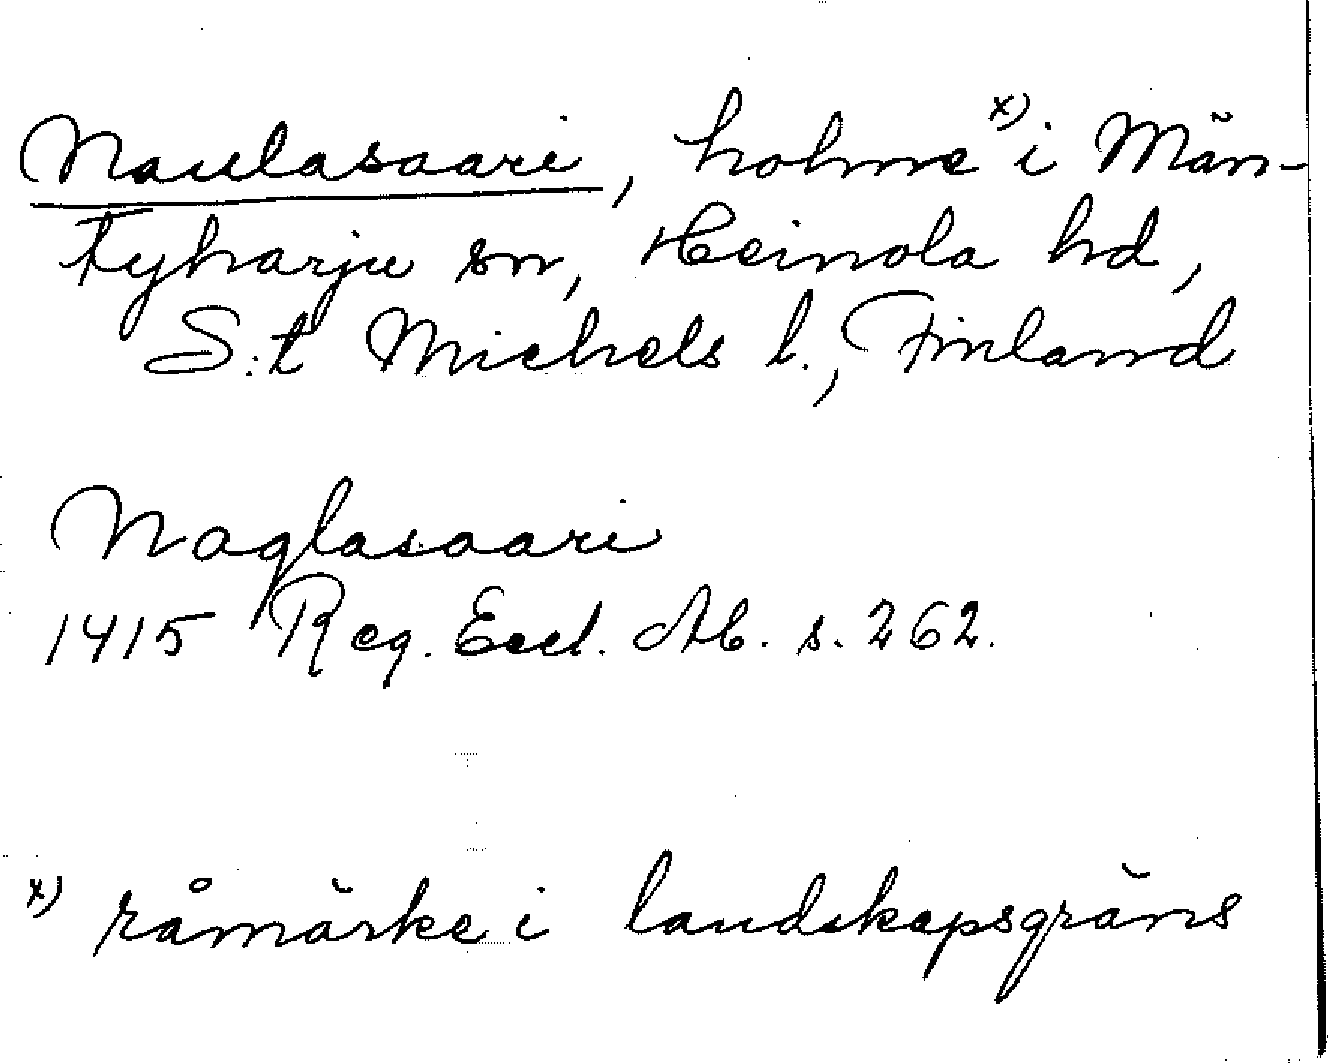 Naulasaari, holme x) i Män-
tyharju sn, Heinola hd,
S:t Michels l., Finland
Naglasaari
1415 Reg. Eccl. Ab. s. 262.
x) råmärke i landskapsgräns